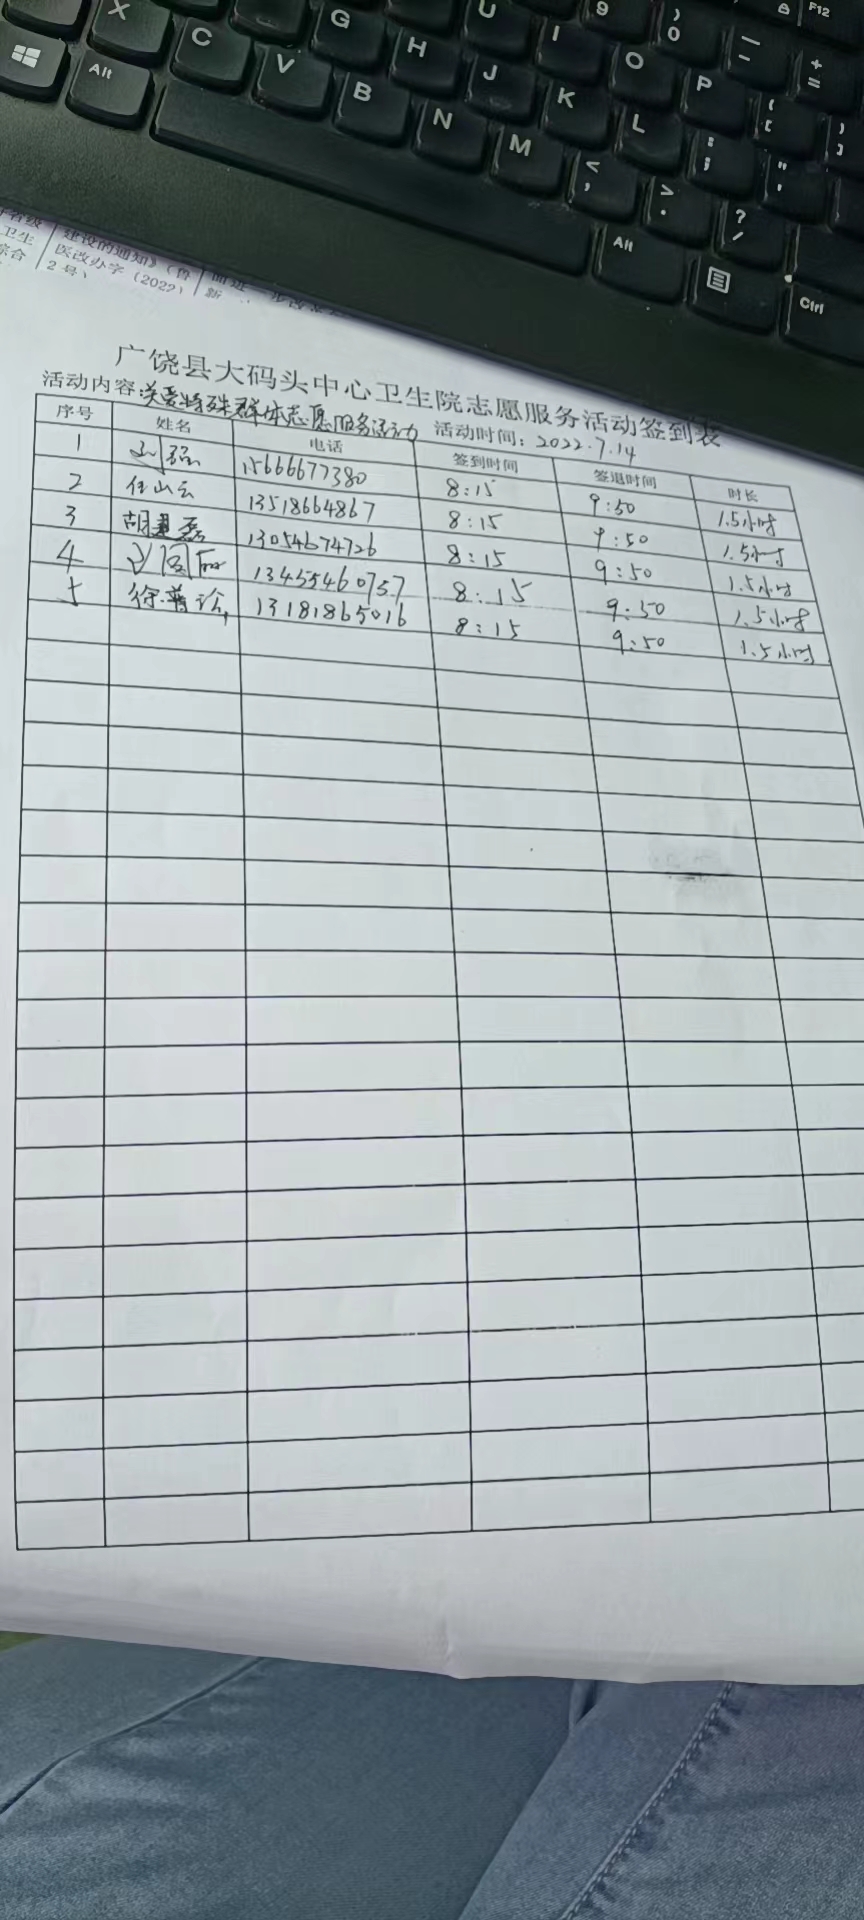 X G U 9 ) 0 — - + = F12
C H I O P { [ } ]
Alt V J K L : ; " '
B N M < , > . ? /
Alt Ctrl
省级 建设的通知》(鲁
卫生 医改办字(2022)
综合 2号)
广饶县大码头中心卫生院志愿服务活动签到表
活动内容:关爱特殊群体志愿服务活动 活动时间:2022.7.14
序号 姓名 电话 签到时间 签退时间 时长
1 刘磊 15666677380 8:15 9:50 1.5小时
2 任山云 13518664867 8:15 9:50 1.5小时
3 胡建磊 13054674726 8:15 9:50 1.5小时
4 13455460757 8:15 9:50 1.5小时
5 徐 13181865016 8:15 9:50 1.5小时